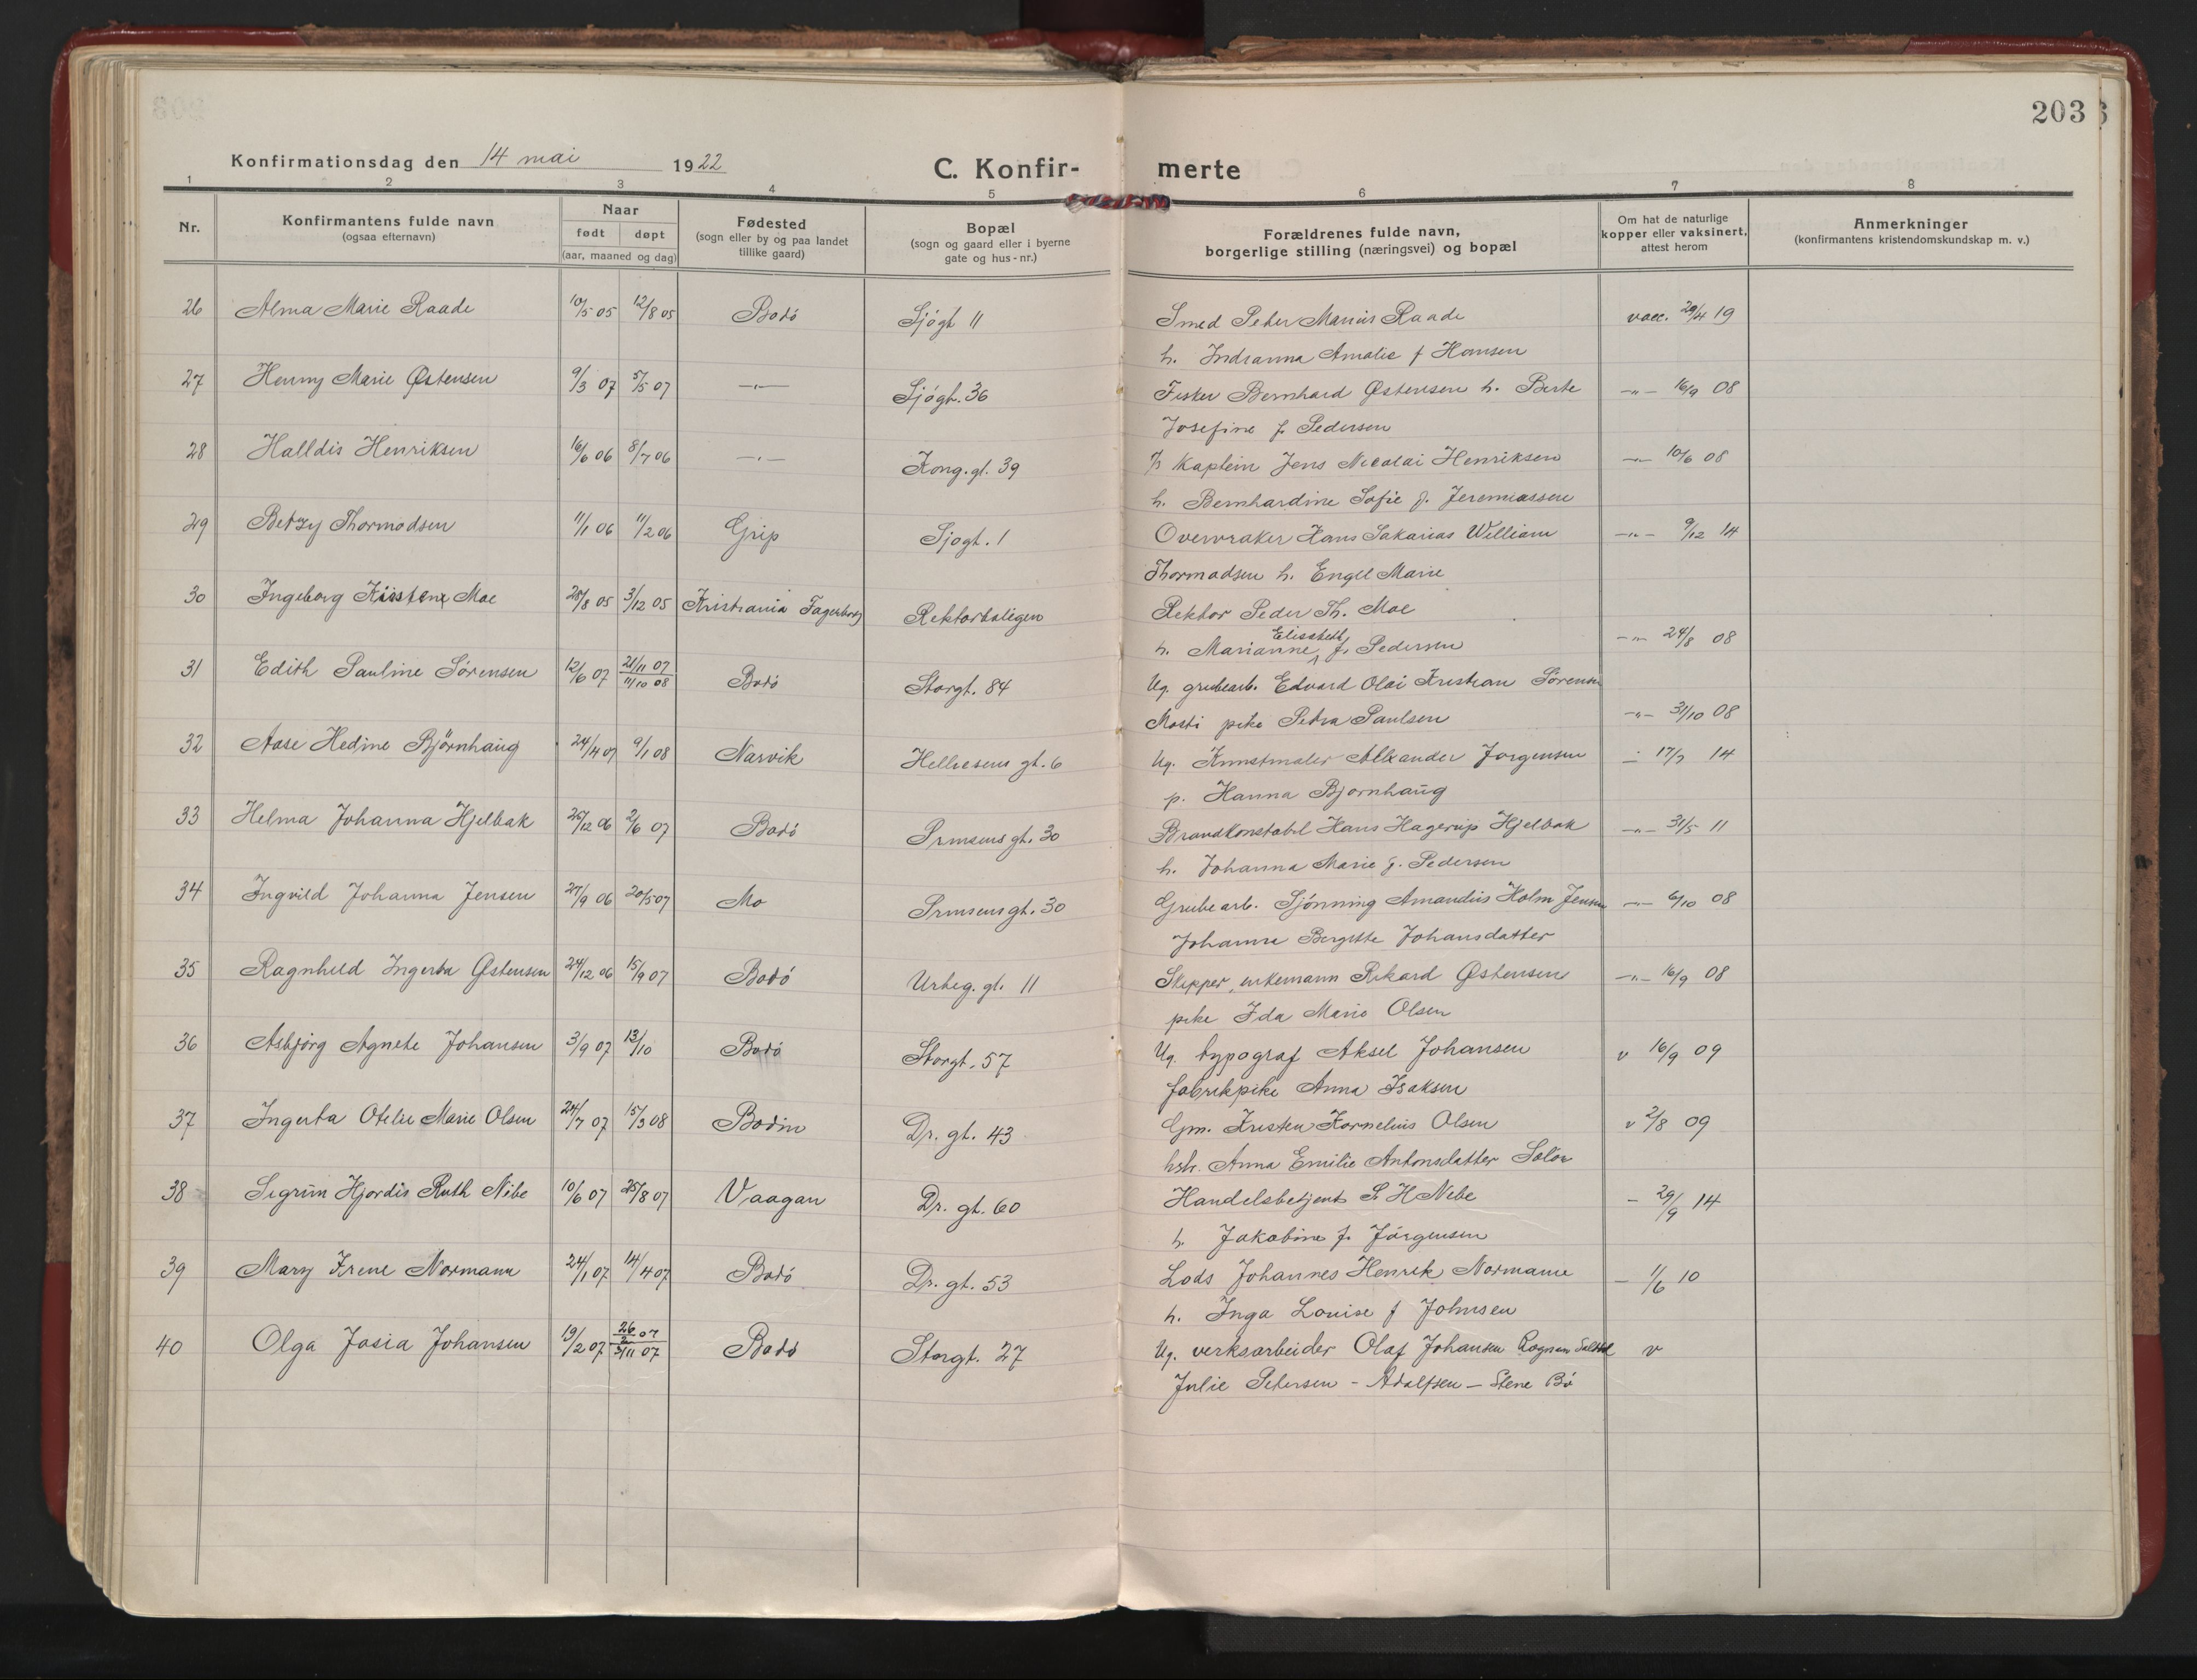 203
Konfirmationsdag den 14 mai 1922
C. Konfir- merte
1 2 3 4 5 6 7 8
Nr.
Konfirmantens fulde navn
(ogsaa efternavn)
Naar
født døpt
(aar, maaned og dag)
Fødested
(sogn eller by og paa landet
tillike gaard)
Bopæl
(sogn og gaard eller i byerne
gate og hus-nr.)
Forældrenes fulde navn,
borgerlige stilling (næringsvei) og bopæl
Om hat de naturlige
kopper eller vaksinert,
attest herom
Anmerkninger
(konfirmantens kristendomskundskap m. v.)
26 Alma Marie Raade 10/5 05 12/8 05 Bodó Sjógt 11 Smed Peder Marius Raade vacc. 29/4 19
h. Indianna Amalie f Hansen
27 Henny Marie Østensen 9/3 07 5/5 07 —„— Sjógt. 36 Fisker Bernhard Østensen h. Berte —„— 16/9 08
Josefine f. Pedersen
28 Halldis Henriksen 16/6 06 8/7 06 —„— Kong.gt. 39 Kaptein Jens Nicolai Henriksen —„— 10/6 08
h. Bernhardine Sofie f. Jeremiassen
29 Betzy Thormodsen 11/1 06 11/2 06 Grip Sjogt. 1 Overvraker Hans Sakarias William —„— 9/12 14
Thormodsen h. Engel Marie
30 Ingeborg Moe 28/8 05 3/12 05 Kristiania Fagerborg Rektorboligen Rektor Peder Th. Moe
h. Marianne Elisabeth f. Pedersen —„— 24/8 08
31 Edith Pauline Sørensen 12/6 07 21/11 07 11/10 08 Bodó Storgt. 84 Ug. grubearb. Edvard Olai Kristian Sørensen
pike Petra Paulsen —„— 31/10 08
32 Aase Hedine Bjørnhaug 24/4 07 9/1 08 Narvik Hellesens gt. 6 Ug. Kunstmaler Alexander Jorgensen 17/7 14
p. Hanna Bjornhaug
33 Helma Johanna Hjelbak 25/12 06 2/6 07 Bodó Prinsens gt. 30 Brandkonstabel Hans Hagerup Hjelbak —„— 31/5 11
h. Johanna Marie f. Pedersen
34 Ingvild Johanna Jensen 27/9 06 20/5 07 Mo Prinsens gt. 30 Grubearb. Sjónning Amandus Holm Jensen —„— 6/10 08
Johanne Bergitte Johansdatter
35 Ragnhild Ingerba Østensen 24/12 06 15/9 07 Bodó gt. 11 Skipper, enkemann Rikard Østensen —„— 16/9 08
pike Ida Marie Olsen
36 Asbjørg Agnete Johansen 3/9 07 13/10 Bodó Storgt. 57 Ug. typograf Aksel Johansen v 16/9 09
fabrikpike Anna Isaksen
37 Ingerba Otelie Marie Olsen 24/7 07 15/3 08 Bodin Dr. gt. 43 Gm. Kristen Kornelius Olsen v 2/8 09
hstr. Anna Emilie Antonsdatter
38 Sigrun Hjordis Ruth Nibe 10/6 07 25/8 07 Vaagan Dr. gt. 60 Handelsbetjent P. H Nibe — 29/9 14
h. Jakobine f. Jórgensen
39 Mary Irene Normann 24/1 07 14/4 07 Bodó Dr. gt. 53 Lods Johannes Henrik Normann — 11/6 10
h. Inga Louise f Johnsen
40 Olga Josia Johansen 19/2 07 3/11 07 Bodó Storgt. 27 Ug. verksarbeider Olaf Johansen Rognan v
Julie Petersen – Adolfsen – Stene Bó